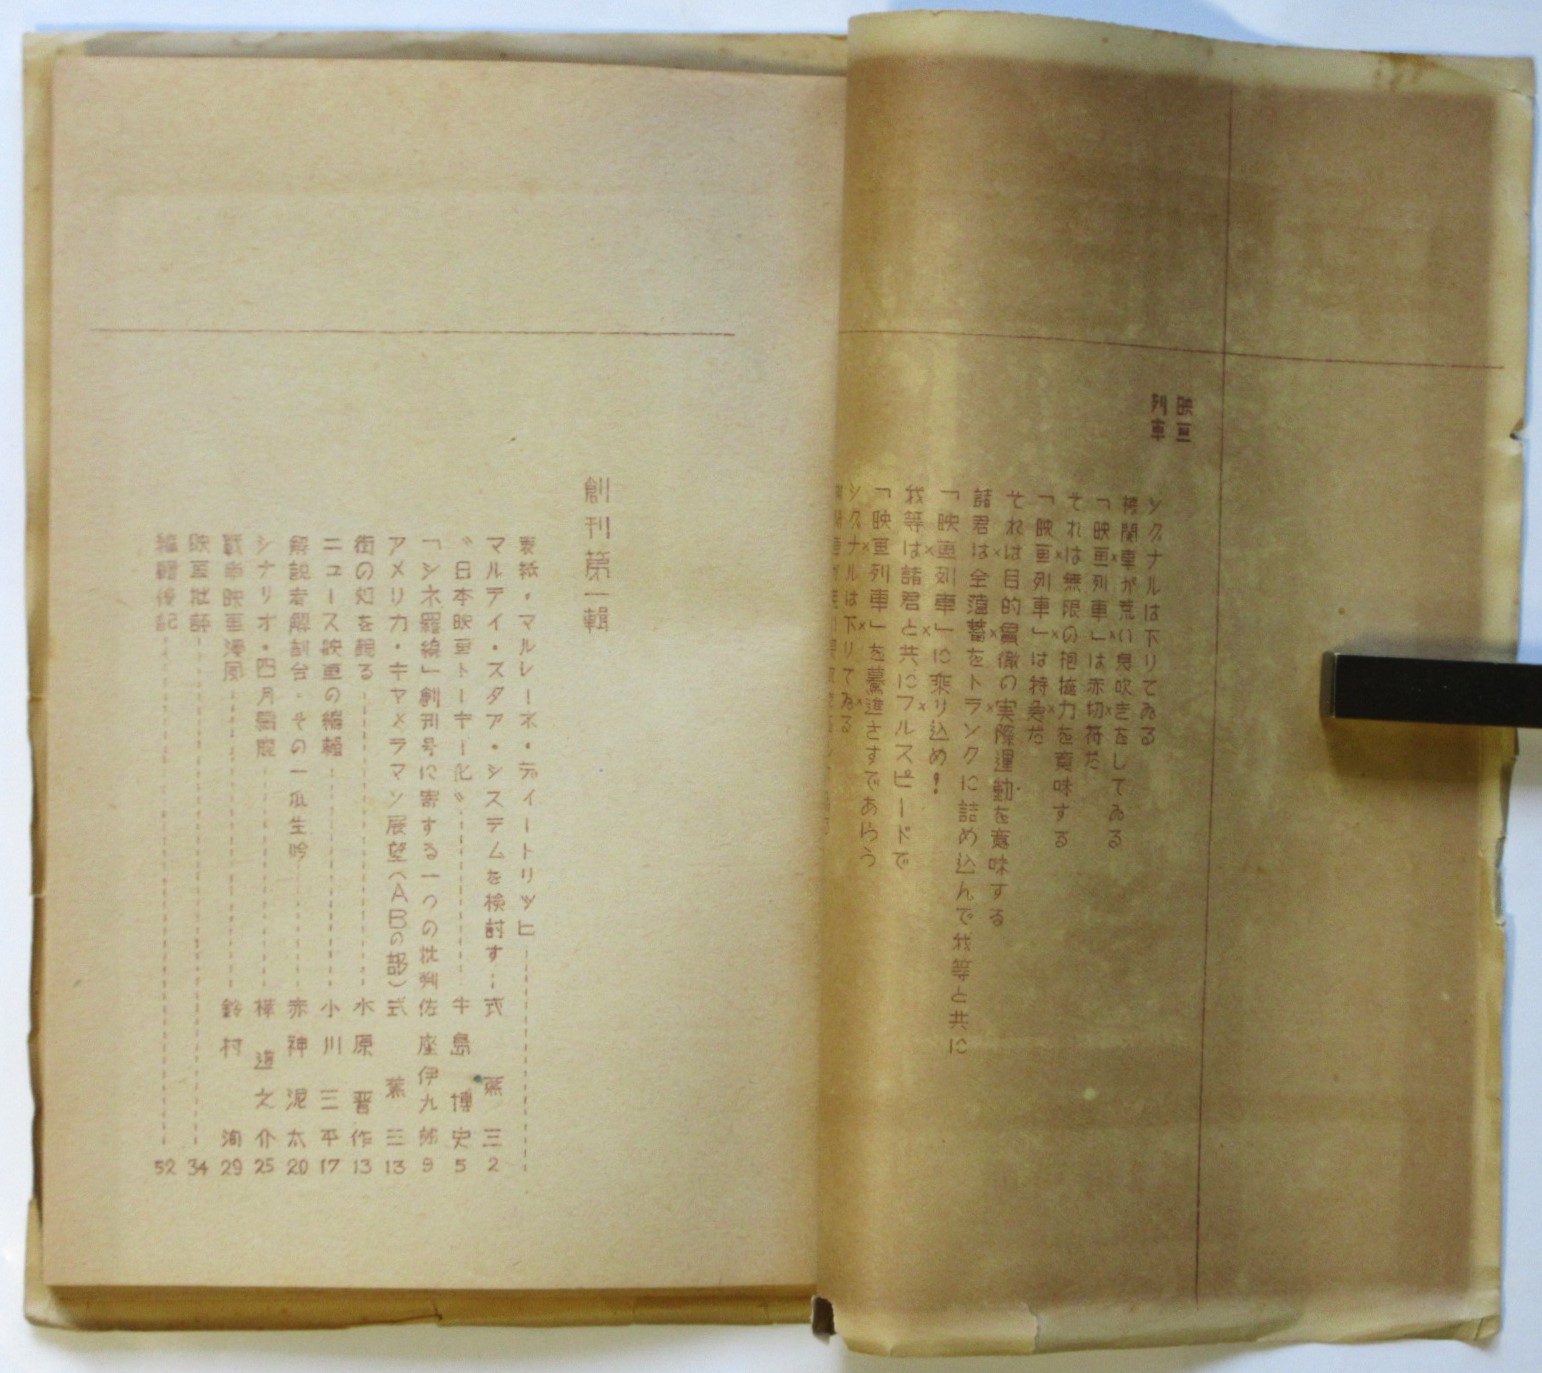 映画
列車
シグナルは下りてゐる
機関車が荒い息吹きをしてゐる
「映画列車」は赤切符だ
×
それは無限の抱擁力を意味する
×
「映画列車」は特急だ
×
それは目的冒険の実際運動を意味する
×
諸君は全薀蓄をトランクに詰め込んで我等と共に
「映画列車」に乗り込め！
×
我等は諸君と共にフルスピードで
「映画列車」を驀進さすであらう
×
シグナルは下りてゐる
創刊第一輯
表紙・マルレーネ・ディートリッヒ
マルティ・スタア・システムを検討す 式 葉三 2
〝日本映画トーキー化〟 牛島博史 5
「シネ羅繞」創刊号に寄する一つの批判 佐座伊九郎 9
アメリカ・キャメラマン展望（ABの部） 式 葉三 13
街の灯を観る 水原晋作 13
ニュース映画の編輯 小川三平 17
解説者解剖台・その一瓜生吟 赤神泥太 20
シナリオ・四月 樺道之介 25
戦争映画漫展 鈴村洵 29
映画批評 34
編輯後記 52